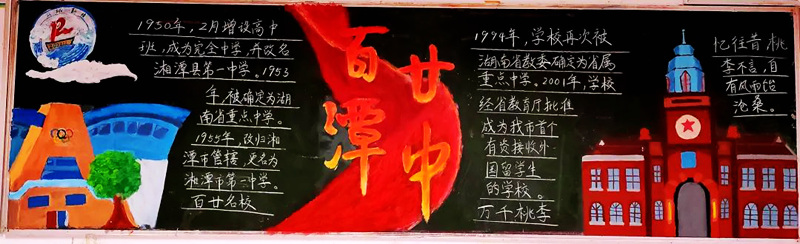 1950年，2月增设高中
班，成为完全中学，并改名
湘潭县第一中学。1953
年，被确定为湖
南省重点中学。
1955年，改归湘
潭市管辖，更名为
湘潭市第一中学。
百廿名校
百廿
潭中
1994年，学校再次被
湖南省教委确定为省属
重点中学。2001年，学校
经省教育厅批准
成为我市首个
有资接收外
国留学生
的学校。
万千桃李
忆往昔桃
李不言，自
有风雨话
沧桑。